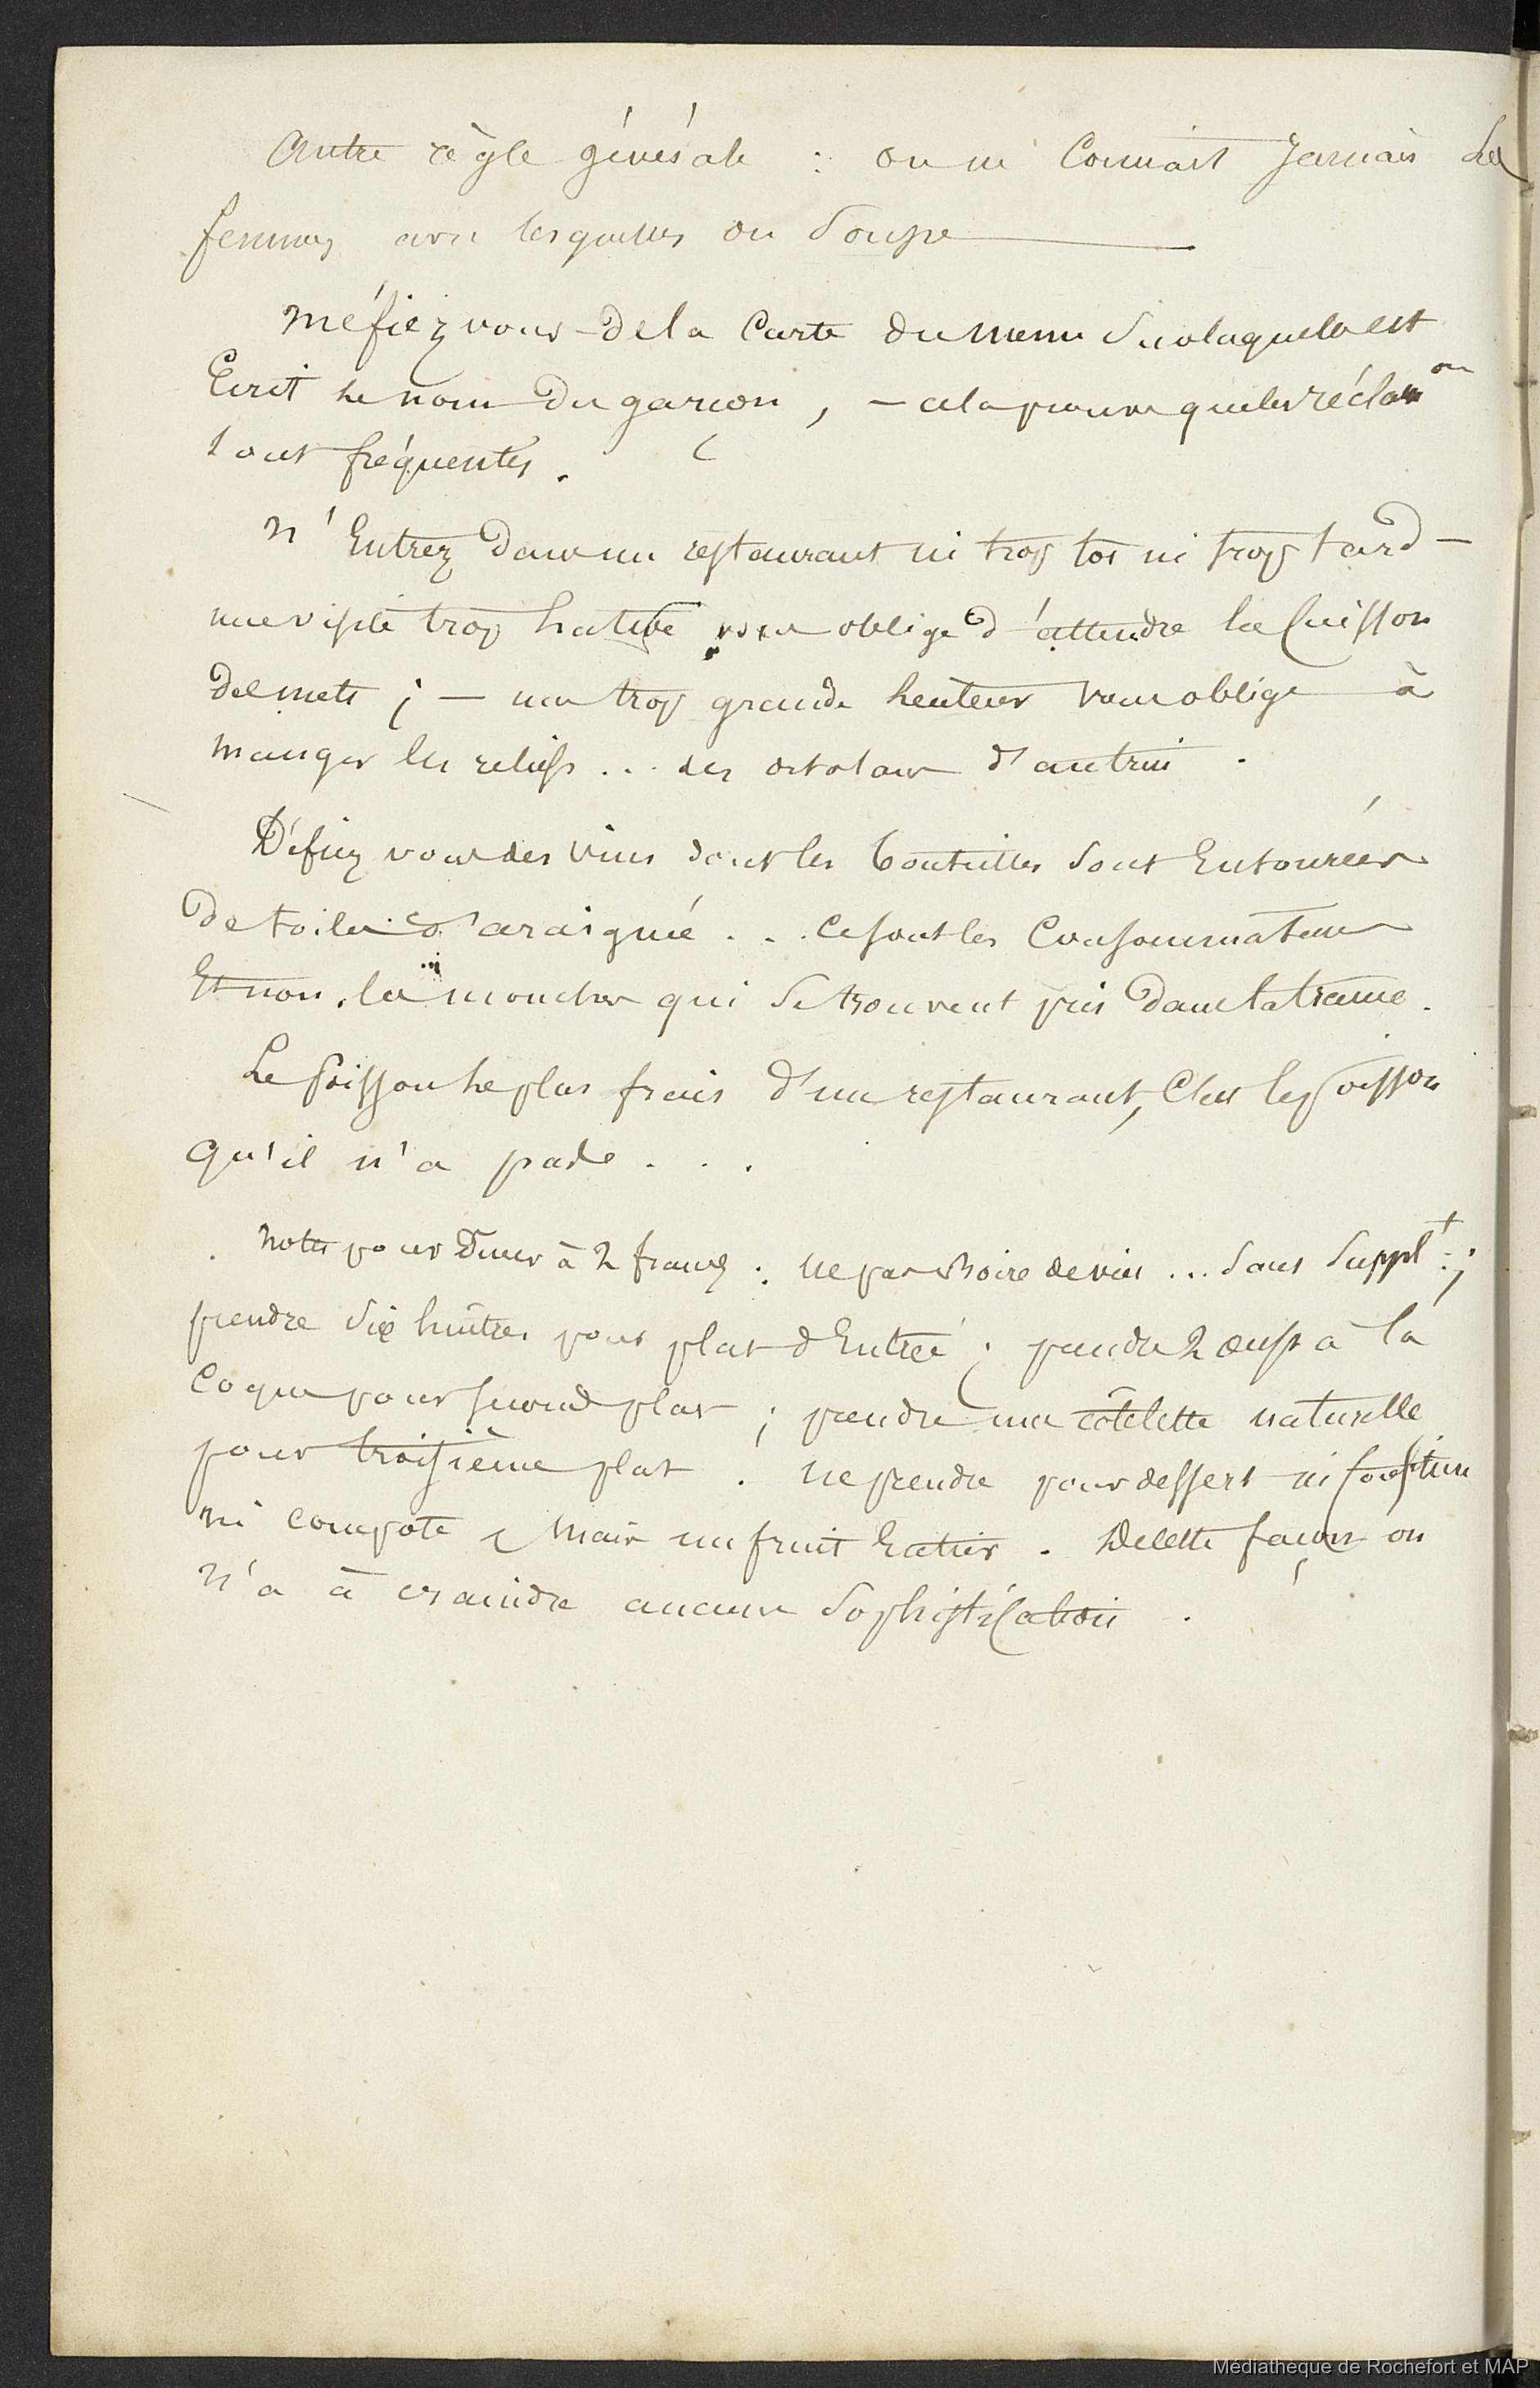 Autre règle générale : on ne connait Jamais les
femmes avec lesquelles on soupe —
Méfiez vous — de la Carte du menu sur laquelle est
Ecrit le nom du garçon, — cela prouve que les réclam^on
sont fréquentes.
N'Entrez dans un restaurant ni trop tot ni trop tard —
une visite trop hative vous oblige d'attendre la Cuisson
des mets ; — une trop grande lenteur vous oblige à
manger les reliefs ... des ortolans d'autrui.
Défiez vous des vins dont les bouteilles sont Entourées
de toiles d'araignée ... Ce sont les Consommateurs
Et non les mouches qui se trouvent pris dans la trame.
Le poisson le plus frais d'un restaurant, C'est le poisson
qu'il n'a pas ...
Notes pour Diner à 2 francs : ne pas boire de vin ... sans suppl^t ;
prendre six huîtres pour plat d'Entrée ; prendre 2 œufs à la
Coque pour second plat ; prendre une côtelette naturelle
pour troisième plat . Ne prendre pour dessert ni confiture
ni compote, Mais un fruit Entier. De cette façon on
n'a à craindre aucune Sophistication.
Médiathèque de Rochefort et MAP